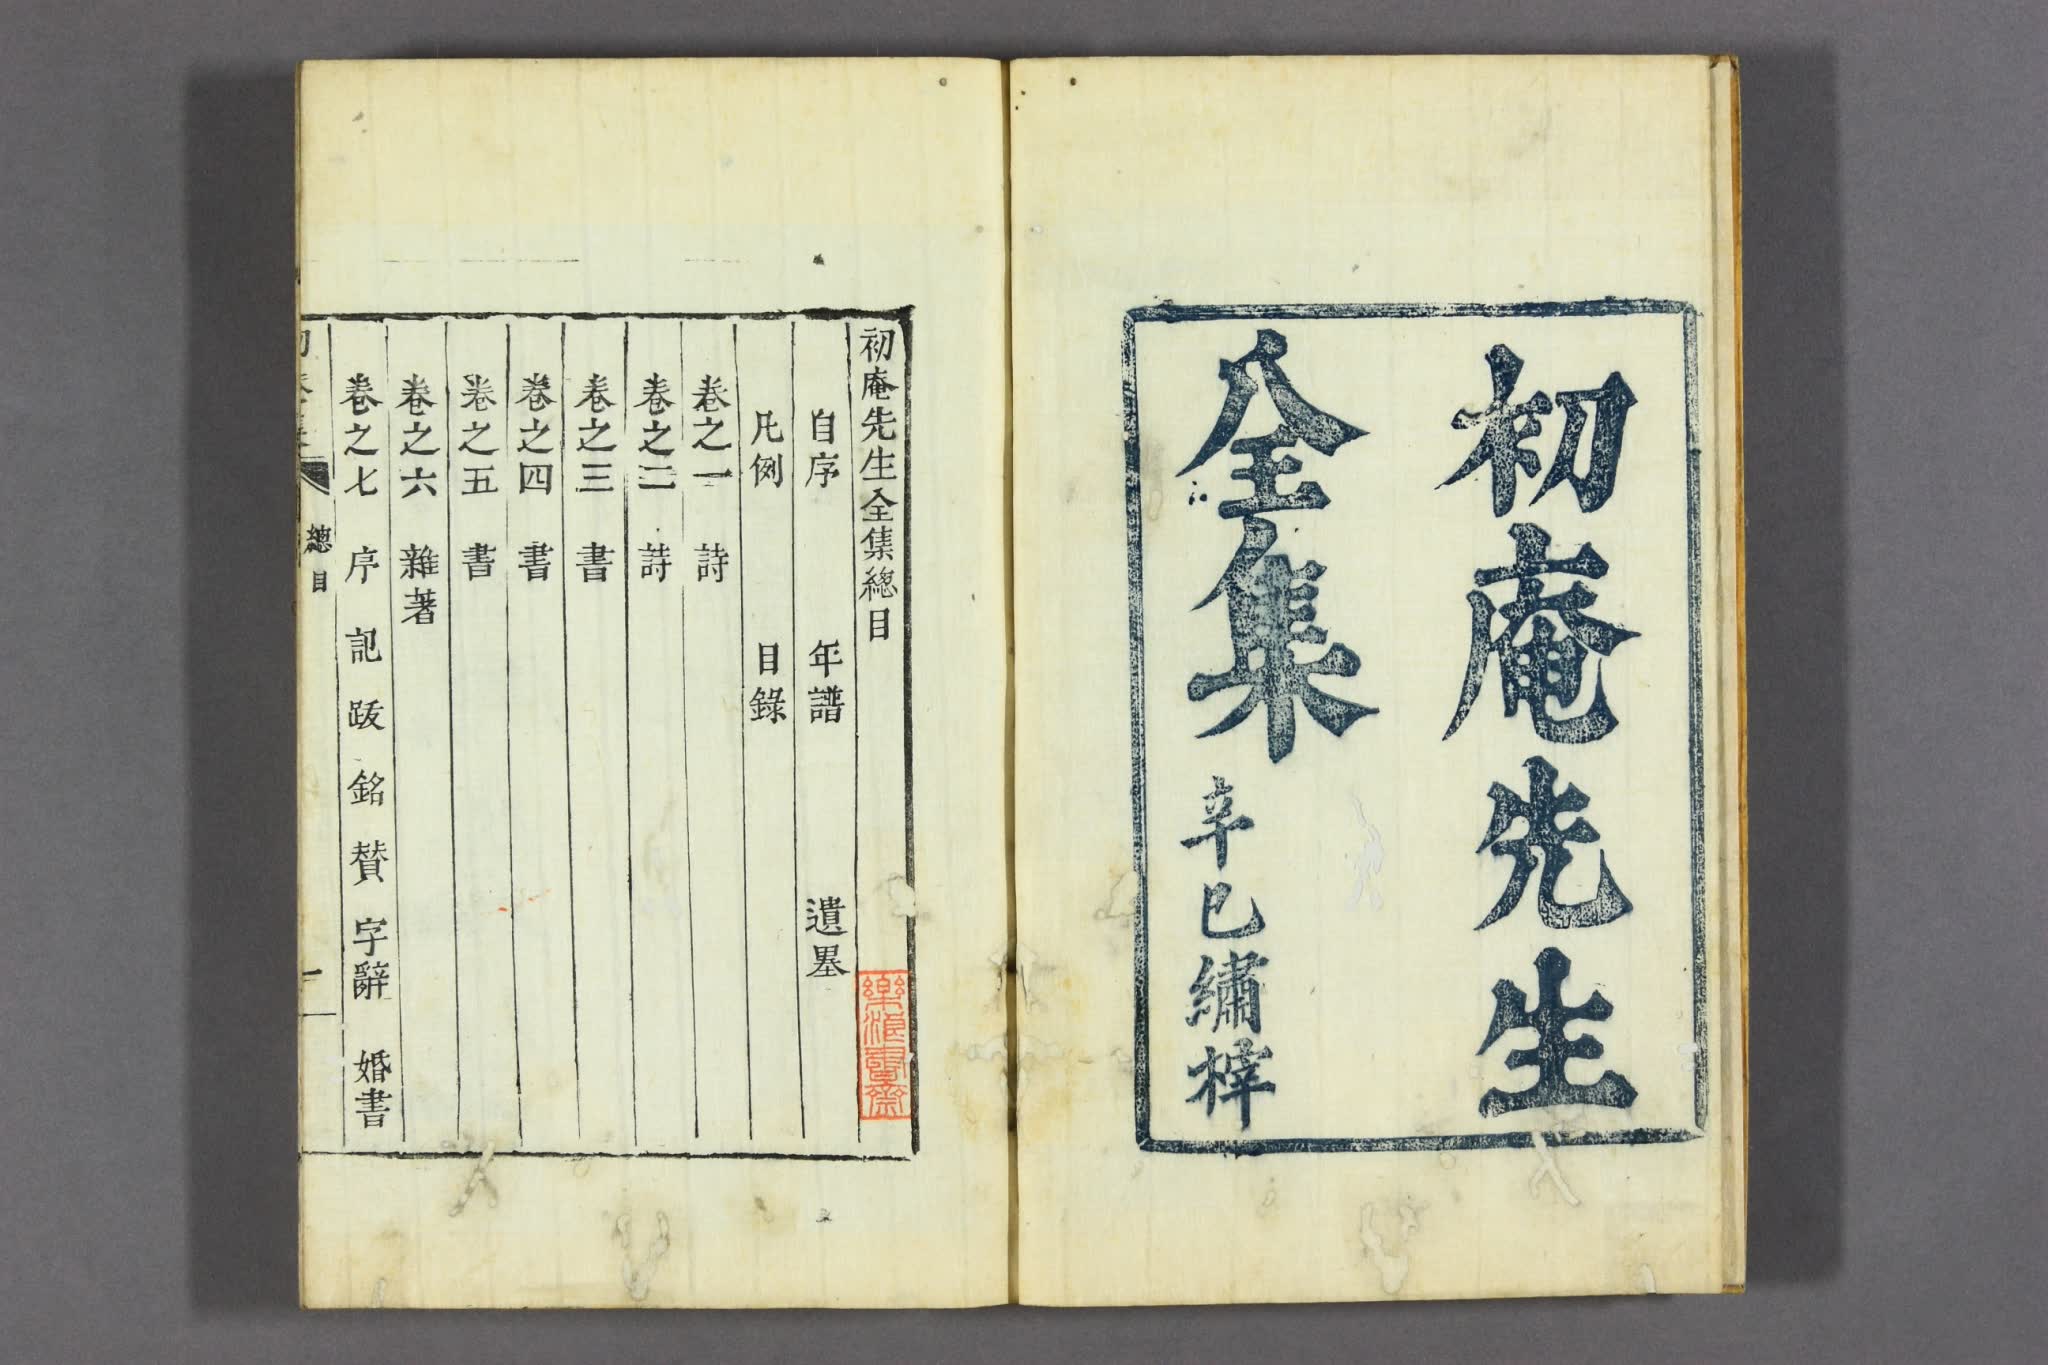 初庵先生
全集
辛巳繡梓
初庵先生全集總目
自序 年譜 遺墨
凡例 目錄
卷之一 詩
卷之二 詩
卷之三 書
卷之四 書
卷之五 書
卷之六 雜著
卷之七 序 記 跋 銘 贊 字辭 婚書
總目
樂浪書齋